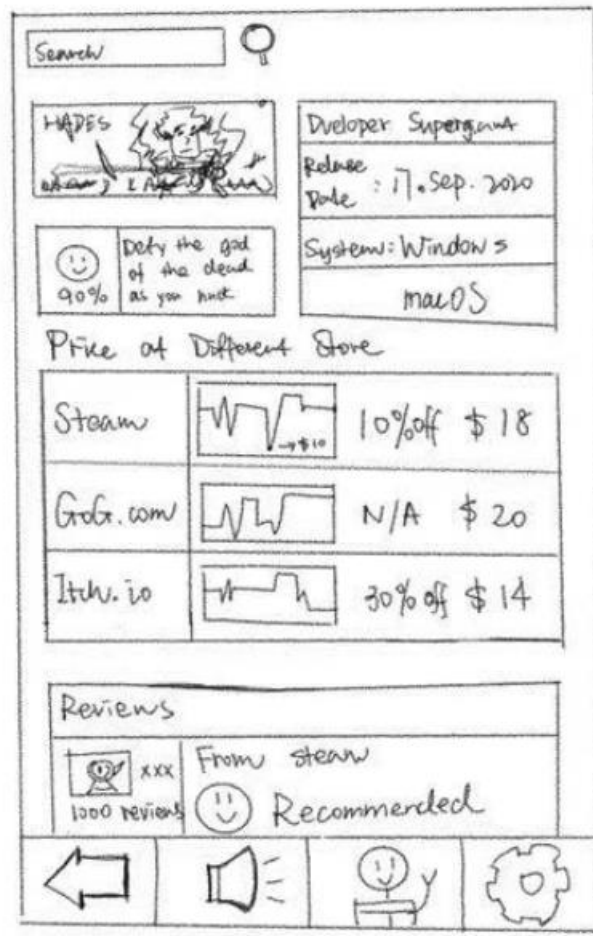 Search
HADES
Dveloper Supergiant
Release Date : 17. Sep. 2020
System: Windows
macOS
90%
Defy the god
of the dead
as you hack
Price at Different Store
Steam
→ $10
10% off $ 18
GoG.com
N/A $ 20
Itch.io
30% off $ 14
Reviews
xxx
1000 reviews
From steam
Recommended